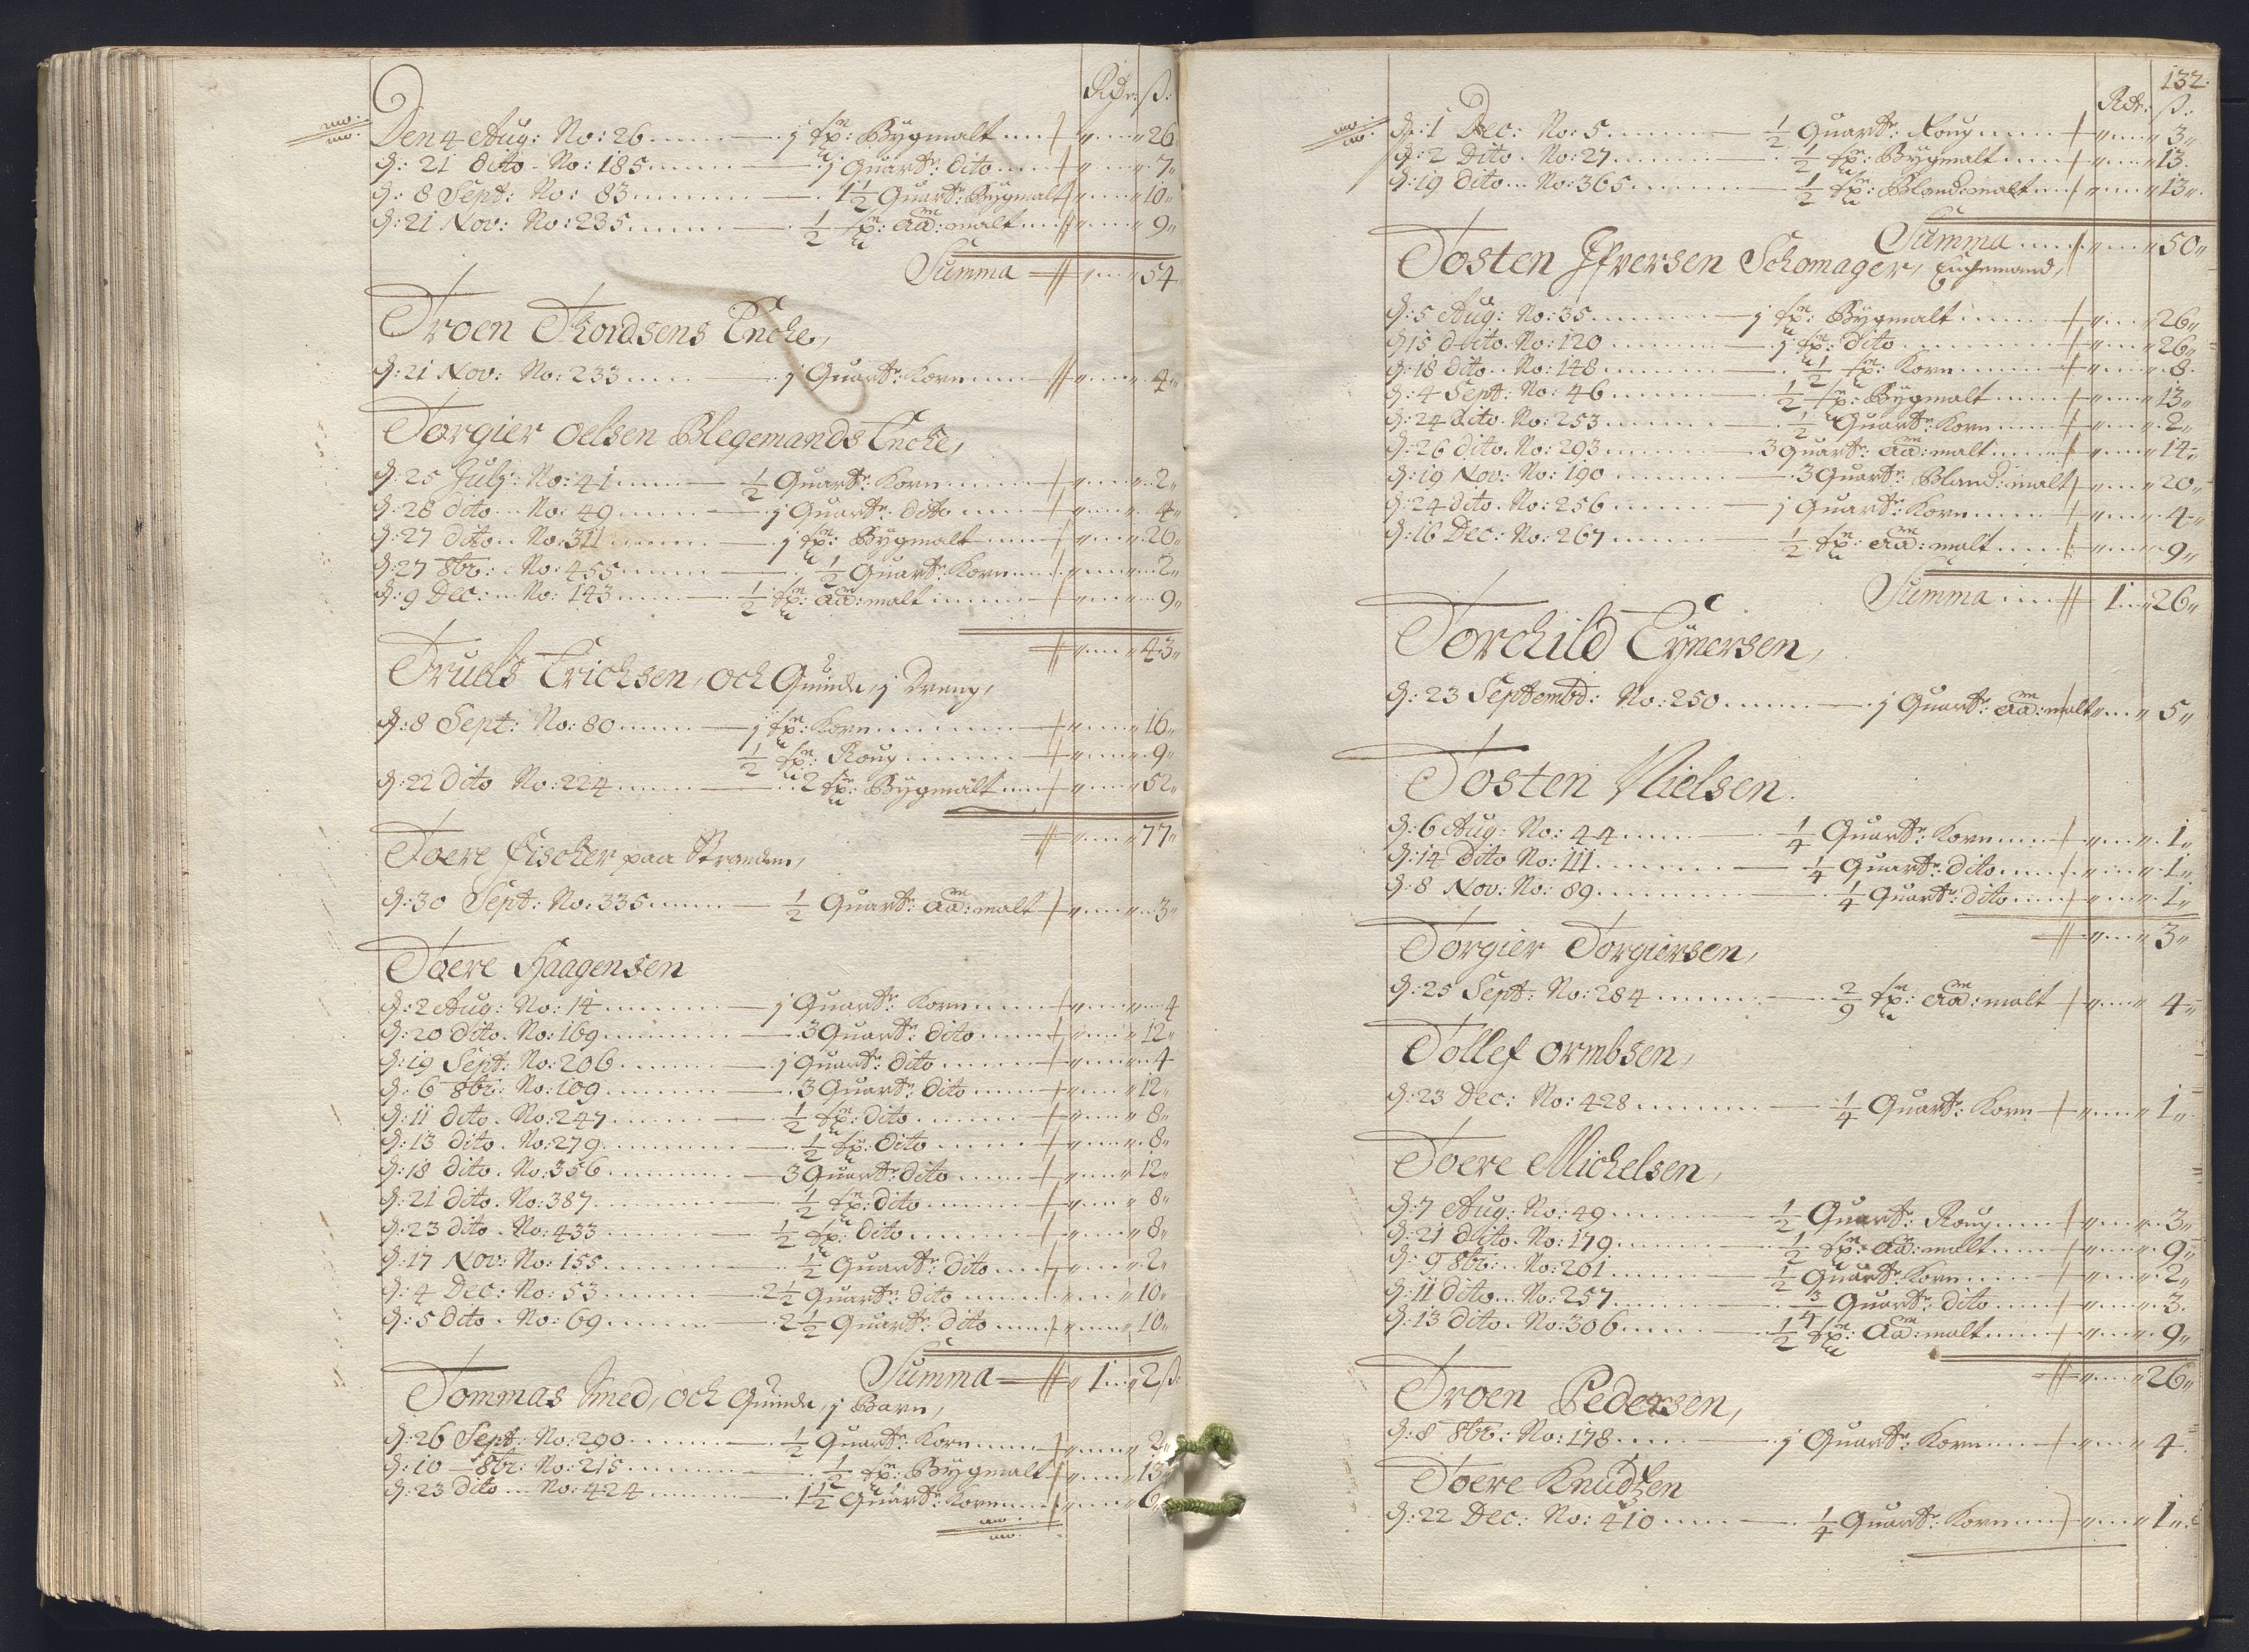 Rdr: ß:
Den 4 Aug: No: 26 ...... — j sp: Bÿgmalt .... // „ .... „ 26
d: 21 dito . No: 185 ...... — j Quart: dito .... / „ .... „ 7„
d: 8 Sept: No: 83 ...... — 1½ Quart: Bÿgmalt / „ .... „ 10„
d: 21 Nov: No: 235 ...... — ½ sp: aa: malt .... // „ .... „ 9„
Summa — // „ .... „ 54
Troen Thordsens Encke,
d: 21 Nov: No: 233 ..... — j Quart: Korn .... // „ .... „ 4„
Torgier Oelsen Blegemands Encke,
d: 25 Julÿ: No: 41 ..... — ½ Quart: Korn .... / „ .... „ 2„
d: 28 dito ... No: 49 ..... — j Quart: dito .... / „ .... „ 4„
d: 27 dito .. No: 311 ..... — j sp: Bÿgmalt .... / „ .... „ 26„
d: 27 8br: .. No: 455 ..... — ½ Quart: Korn .... „ .... „ 2„
d: 9 Dec: ... No: 143 ..... — ½ sp: aa: malt .... / „ .... „ 9„
// „ .... „ 43„
Truls Erichsen, och Quinde, j Dreng,
d: 8 Sept: No: 80 ...... — j sp: Korn .... / „ .... „ 16„
½ sp: Roug .... / „ .... „ 9„
d: 22 dito No: 224 ...... — 2 sp: Bÿgmalt .... / „ .... „ 52„
// „ .... „ 77„
Toere Fischer paa Stranden,
d: 30 Sept: No: 335 ...... — ½ Quart: aa: malt / „ .... „ 3„
Toere Haagensen
d: 2 Aug: No: 14 ...... — j Quart: Korn .... / „ .... „ 4
d: 20 dito . No: 169 ...... — 3 Quart: dito .... / „ .... „ 12„
d: 19 Sept: No: 206 ...... — j Quart: dito .... / „ .... „ 4
d: 6 8br: No: 109 ...... — 3 Quart: dito .... / „ .... „ 12„
d: 11 dito . No: 247 ...... — ½ sp: dito .... / „ .... „ 8„
d: 13 dito . No: 279 ...... — ½ sp: dito .... / „ .... „ 8„
d: 18 dito . No: 356 ...... — 3 Quart: dito .... / „ .... „ 12„
d: 21 dito . No: 387 ...... — ½ sp: dito .... / „ .... „ 8„
d: 23 dito . No: 433 ...... — ½ sp: dito .... / „ .... „ 8„
d: 17 Nov: No: 155 ...... — ½ Quart: dito .... / „ .... „ 2„
d: 4 Dec: No: 53 ...... — 2½ Quart: dito .... „ .... „ 10„
d: 5 dito . No: 69 ...... — 2½ Quart: dito .... / „ .... „ 10„
Summa — // „ 1 ... „ 2ß:
Tommas Smed, och Quinde, j Barn,
d: 26 Sept: No: 290 ...... — ½ Quart: Korn .... / „ .... „ 2„
d: 10 — 8br: No: 215 ...... — ½ sp: Bÿgmalt / „ .... „ 13„
d: 23 dito ... No: 424 ...... — 1½ Quart: Korn .... „ .... „ 6„
132.
Rdr: ß:
d: 1 Dec: No: 5 ...... — ½ Quart: Roug .... / „ .... „ 3„
d: 2 Dito . No: 27 ...... — ½ sp: Bÿgmalt .... / „ .... „ 13.
d: 19 dito ... No: 365 ...... — ½ sp: Bland: malt .... / „ .... „ 13„
Summa .... / „ .... „ 50„
Tosten Ifversen Schomager,
d: 5 Aug: No: 35 ...... — j sp: Bÿgmalt .... / „ .... „ 26„
d: 15 dito . No: 120 ...... — j sp: dito .... / „ .... „ 26„
d: 18 dito .. No: 148 ...... — ½ sp: Korn .... / „ .... „ 8.
d: 4 Sept: No: 46 ...... — ½ sp: Bÿgmalt .... / „ .... „ 13„
d: 24 dito . No: 253 ...... — ½ Quart: Korn .... / „ .... „ 2„
d: 26 dito . No: 293 ...... 3 Quart: aa: malt .... / „ .... „ 14„
d: 19 Nov: No: 190 ...... — 3 Quart: Bland: malt / „ .... „ 20„
d: 24 dito . No: 256 ...... — j Quart: Korn .... / „ .... „ 4„
d: 16 Dec: No: 267 ...... — ½ sp: aa: malt .... / „ .... „ 9„
Summa .... // 1 ... „ 26„
Torchild Eÿnersen,
d: 23 Septembr: No: 250 ...... — j Quart: aa: malt „ .... „ 5„
Tosten Nielsen.
d: 6 Aug: No: 44 ...... — ¼ Quart: Korn .... / „ .... „ 1„
d: 14 Dito No: 111 ...... — ¼ Quart: dito .... / „ .... „ 1„
d: 8 Nov: No: 89 ...... — ¼ Quart: dito .... / „ .... „ 1„
// „ .... „ 3„
Torgier Torgiersen,
d: 25 Sept: No: 284 ...... — 2/9 sp: aa: malt / „ .... „ 4„
Tollef Ormbsen,
d: 23 Dec: No: 428 ...... — ¼ Quart: Korn / „ .... „ 1„
Toere Michelsen,
d: 7 Aug: No: 49 ...... — ½ Quart: Roug .... / „ .... „ 3„
d: 21 dito . No: 179 ...... — ½ sp: aa: malt .... / „ .... „ 9„
d: 9 8br: .. No: 201 ...... — ½ Quart: Korn .... / „ .... „ 2„
d: 11 dito ... No: 257 ...... — ¾ Quart: dito .... / „ .... „ 3.
d: 13 dito . No: 306 ...... — ½ sp: aa: malt .... / „ .... „ 9„
// „ .... „ 26„
Troen Pedersen,
d: 8 8br: No: 178 ..... — j Quart: Korn .... / „ .... „ 4.
Toere Knudsen
d: 22 Dec: No: 410 ..... — ¼ Quart: Korn .... / „ .... „ 1„